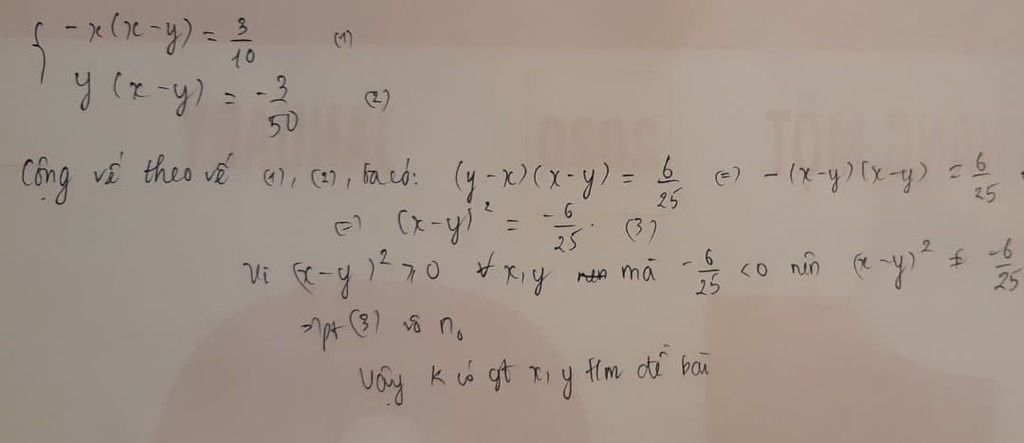 { -x(x-y) = 3/10 (1)
y(x-y) = -3/50 (2)
Cộng vế theo vế (1), (2), ta có: (y-x)(x-y) = 6/25 <=> -(x-y)(x-y) = 6/25
<=> (x-y)² = -6/25. (3)
Vì (x-y)² ≥ 0 ∀ x,y mà -6/25 < 0 nên (x-y)² ≠ -6/25
=> pt (3) vô n₀
Vậy k có gt x, y t/m đề bài